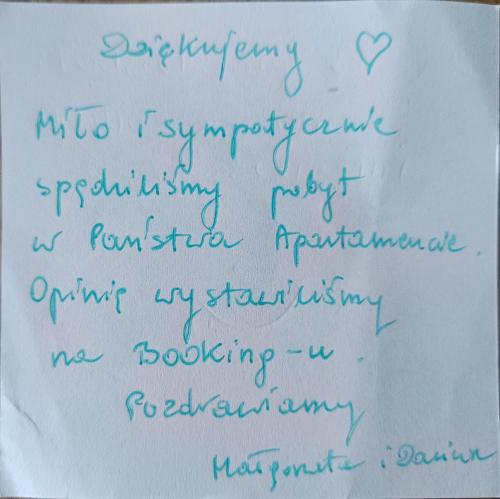 Dziękujemy ♡
Miło i sympatycznie
spędziliśmy pobyt
w Państwa Apartamencie.
Opinię wystawiliśmy
na Booking-u.
Pozdrawiamy
Małgorzata i Dariusz